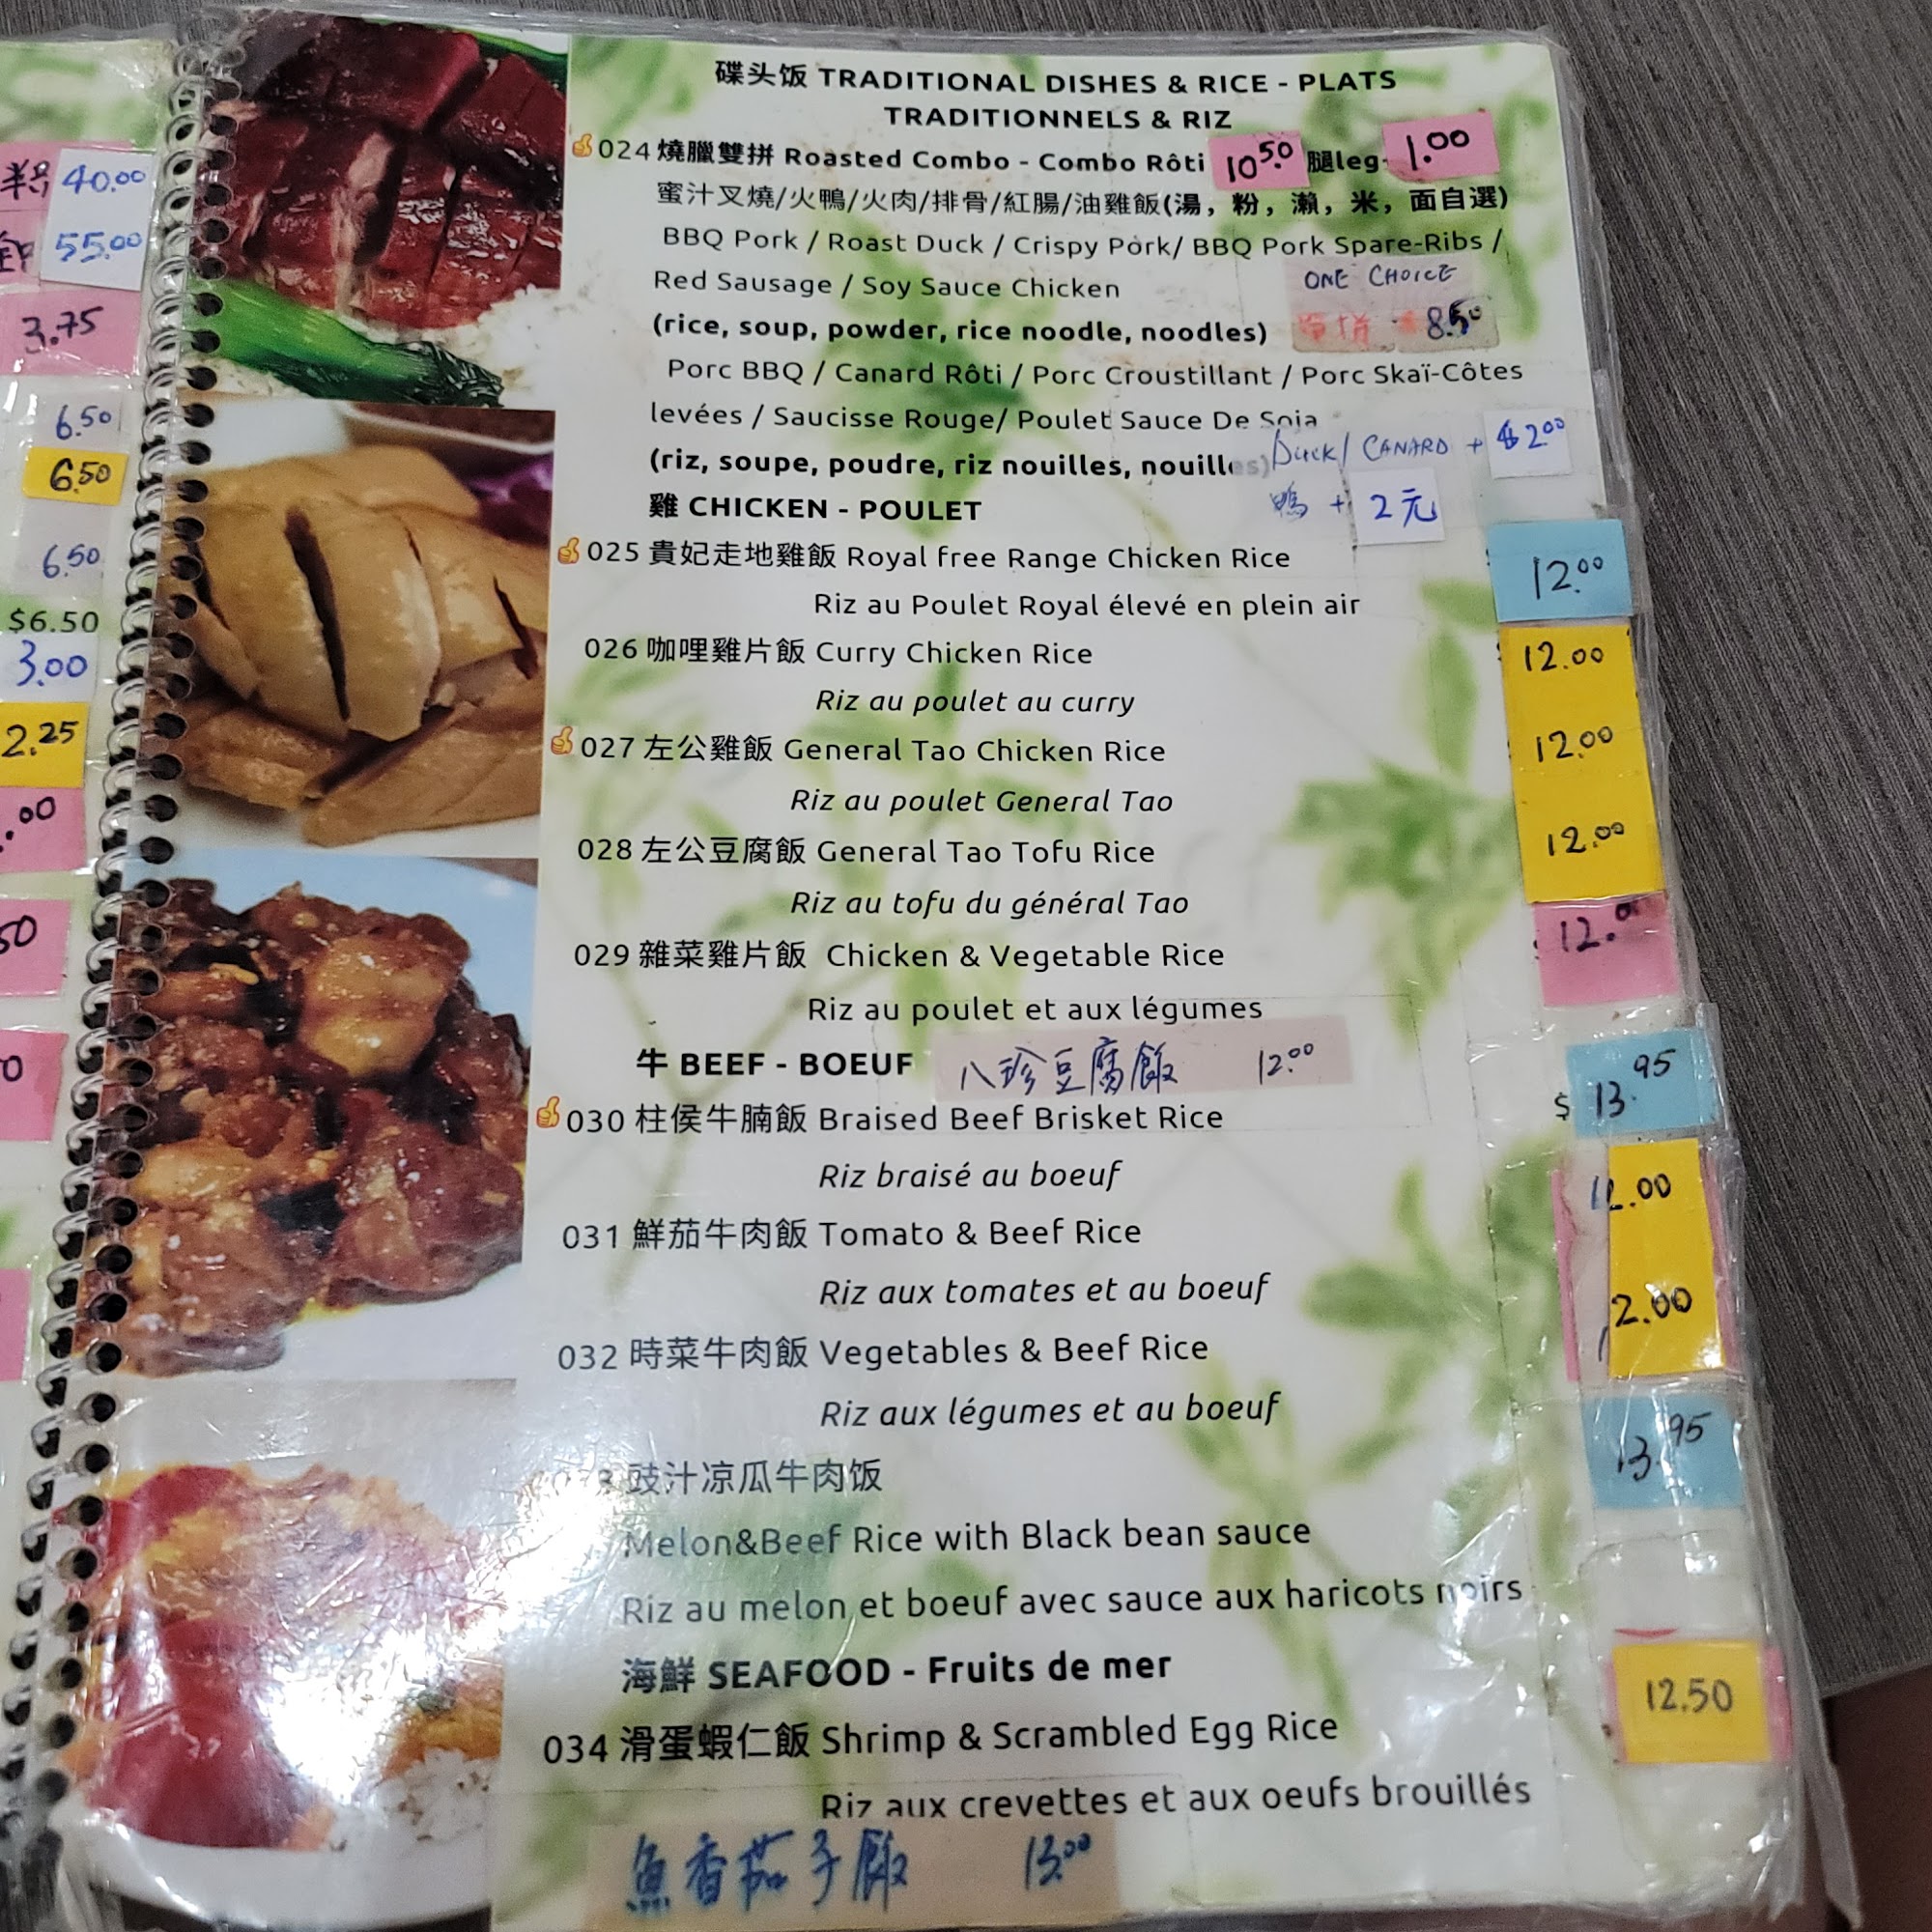 碟头饭 TRADITIONAL DISHES & RICE - PLATS
TRADITIONNELS & RIZ
024 燒臘雙拼 Roasted Combo - Combo Rôti 10.50 腿leg 1.00
蜜汁叉燒/火鴨/火肉/排骨/紅腸/油雞飯(湯，粉，瀨，米，面自選)
BBQ Pork / Roast Duck / Crispy Pork/ BBQ Pork Spare-Ribs /
Red Sausage / Soy Sauce Chicken
ONE CHOICE
(rice, soup, powder, rice noodle, noodles)
8.50
Porc BBQ / Canard Rôti / Porc Croustillant / Porc Skaï-Côtes
levées / Saucisse Rouge/ Poulet Sauce De Soia
Duck/ CANARD + $2.00
(riz, soupe, poudre, riz nouilles, nouilles)
鴨 + 2元
雞 CHICKEN - POULET
025 貴妃走地雞飯 Royal free Range Chicken Rice 12.00
Riz au Poulet Royal élevé en plein air
026 咖哩雞片飯 Curry Chicken Rice 12.00
Riz au poulet au curry
027 左公雞飯 General Tao Chicken Rice 12.00
Riz au poulet General Tao
028 左公豆腐飯 General Tao Tofu Rice 12.00
Riz au tofu du général Tao
029 雜菜雞片飯 Chicken & Vegetable Rice 12.00
Riz au poulet et aux légumes
牛 BEEF - BOEUF 八珍豆腐飯 12.00
030 柱侯牛腩飯 Braised Beef Brisket Rice $ 13.95
Riz braisé au boeuf
031 鮮茄牛肉飯 Tomato & Beef Rice 12.00
Riz aux tomates et au boeuf
032 時菜牛肉飯 Vegetables & Beef Rice 12.00
Riz aux légumes et au boeuf
033 豉汁凉瓜牛肉饭 13.95
Melon&Beef Rice with Black bean sauce
Riz au melon et boeuf avec sauce aux haricots noirs
海鮮 SEAFOOD - Fruits de mer
034 滑蛋蝦仁飯 Shrimp & Scrambled Egg Rice 12.50
Riz aux crevettes et aux oeufs brouillés
魚香茄子飯 13.00
40.00
55.00
3.75
6.50
6.50
6.50
$6.50
3.00
2.25
.00
50